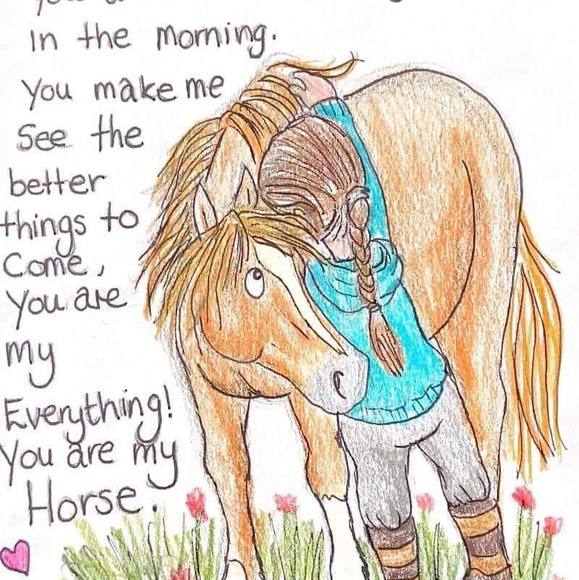 in the morning.
You make me
See the
better
things to
Come,
You are
my
Everything!
You are my
Horse.